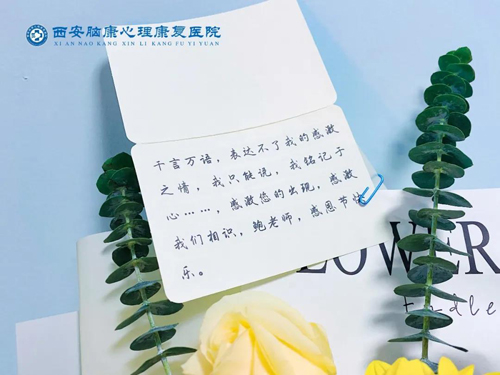 西安脑康心理康复医院
XI AN NAO KANG XIN LI KANG FU YI YUAN
千言万语，表达不了我的感激
之情，我只能说，我铭记于
心……，感激您的出现，感激
我们相识，鲍老师，感恩节快
乐。
LOWER